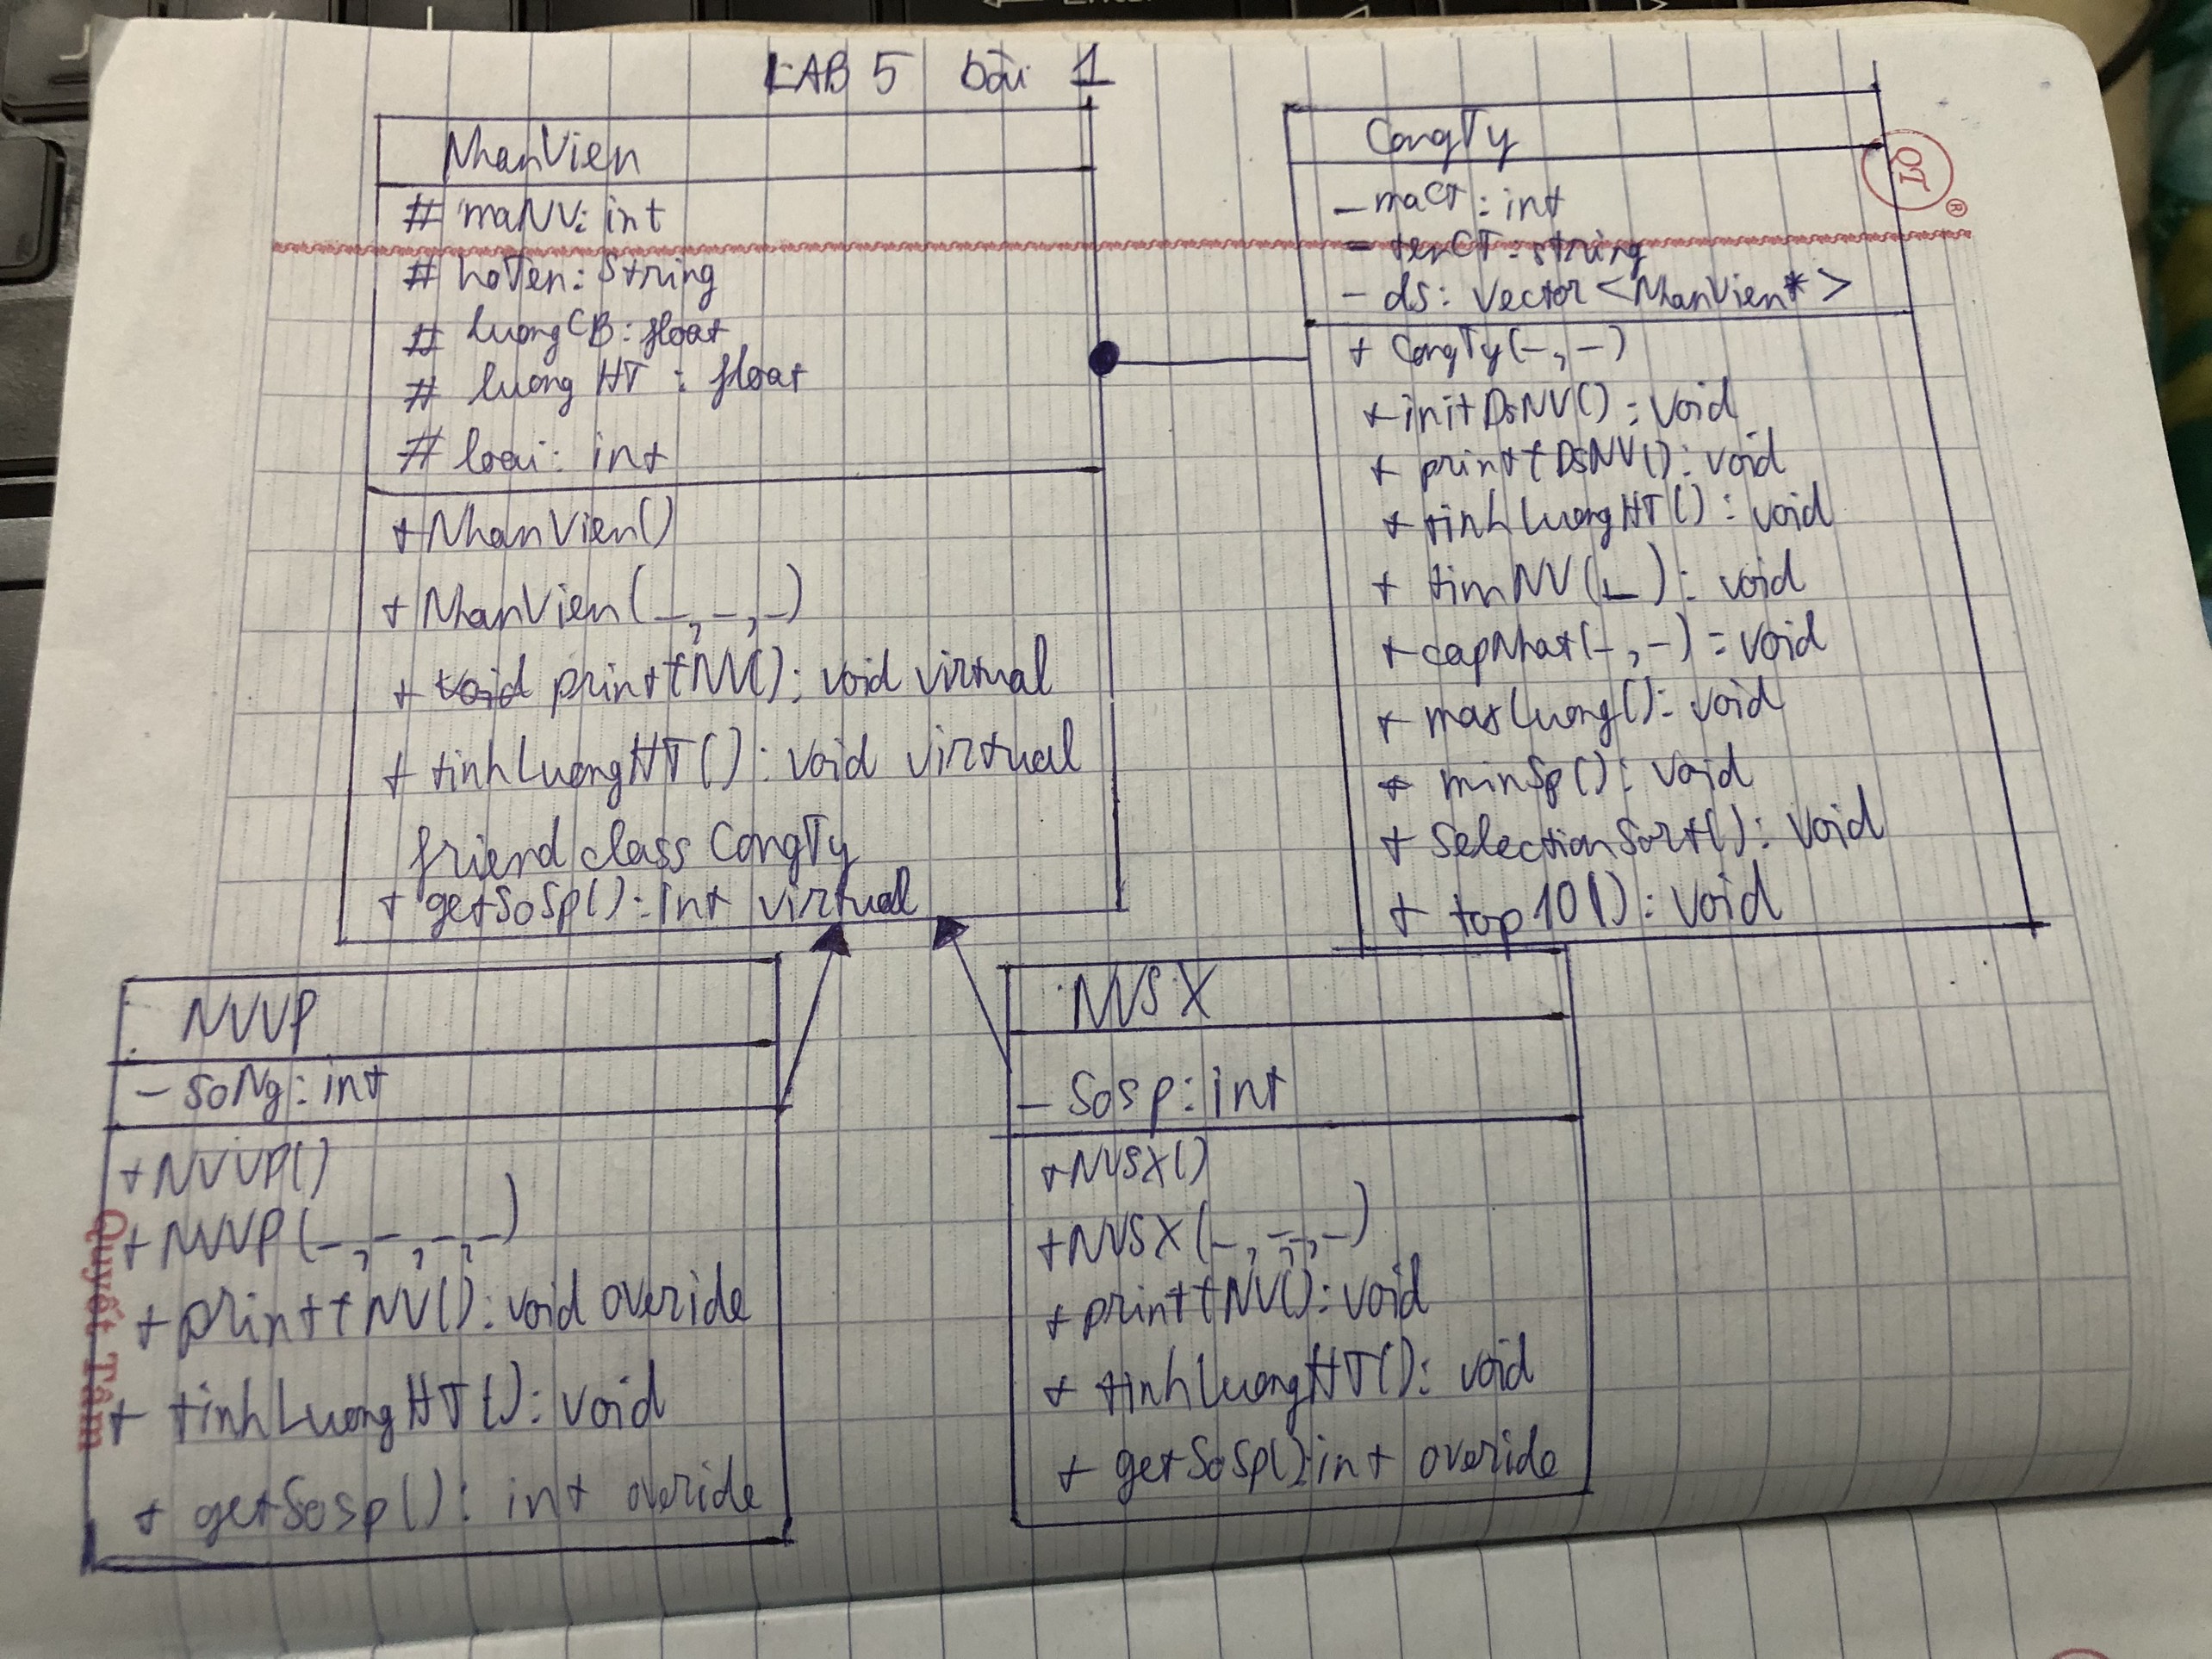 LAB 5 bài 1
NhanVien
# maNV: int
# hoTen: String
# luongCB: float
# luong HT : float
# loai: int
+NhanVien()
+ NhanVien(_,_,_)
+ void printtNV(): void virtual
+ tinhLuongHT(): void virtual
friend class CongTy
+ getSoSp(): int virtual
CongTy
- maCT : int
- tenCT: string
- ds: vector <NhanVien*>
+ CongTy(-,-)
+ initDsNV() : void
+ printtDsNV(): void
+ tinhLuongHT() : void
+ timNV(_): void
+ capNhat(-,-) : void
+ maxLuong(): void
+ minSp(): void
+ SelectionSort(): void
+ top10(): void
NVVP
- SoNg: int
+NVVP()
+ NVVP(_,_,_,_)
+ printtNV(): void overide
+ tinhLuongHT(): void
+ getSosp(): int overide
NVSX
- Sosp: int
+NVSX()
+NVSX(_,_,_,_)
+ printtNV(): void
+ tinhLuongHT(): void
+ getSoSp():int overide
QT
®
Quyết Tâm